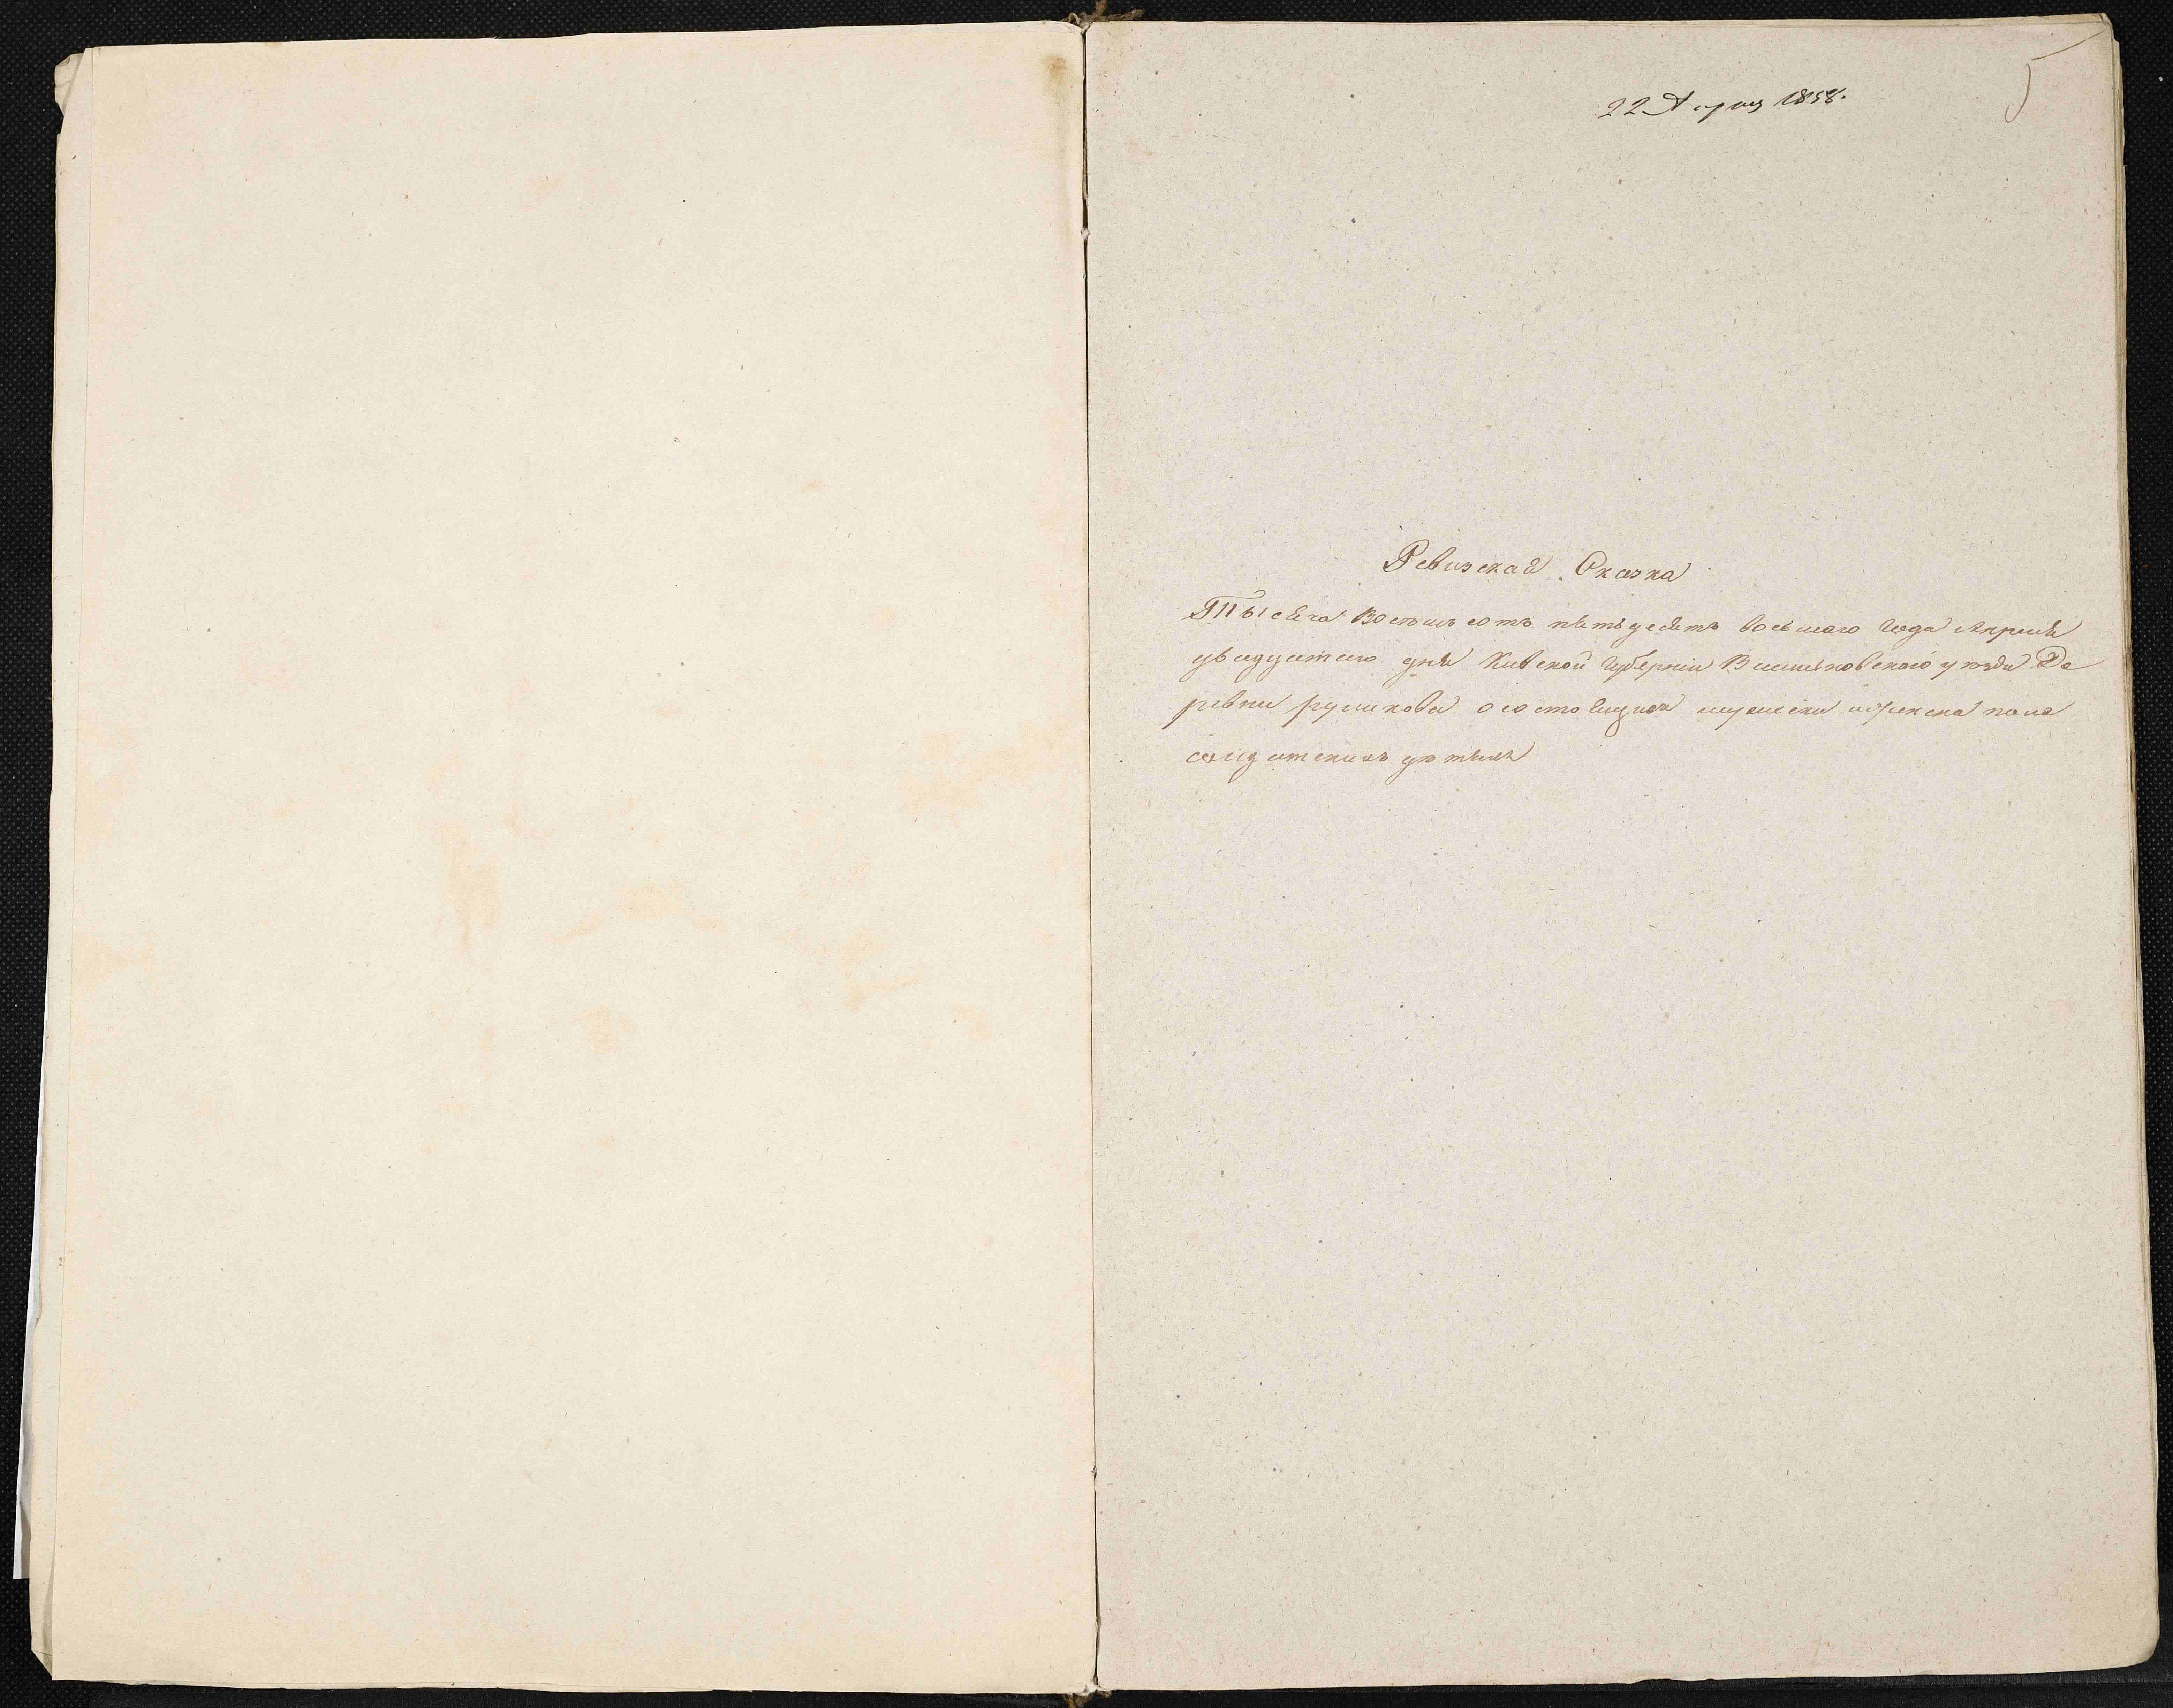 22 Апреля 1858.
5
Ревизская Сказка
Тысяча Восемь сотъ пятьдесятъ восьмаго года Апреля
двадцатаго дня Киевской Губернии Васильковскаго уезда Де
ревни руликова о состоящихъ мужеска и женска пола
солдатскихъ детяхъ